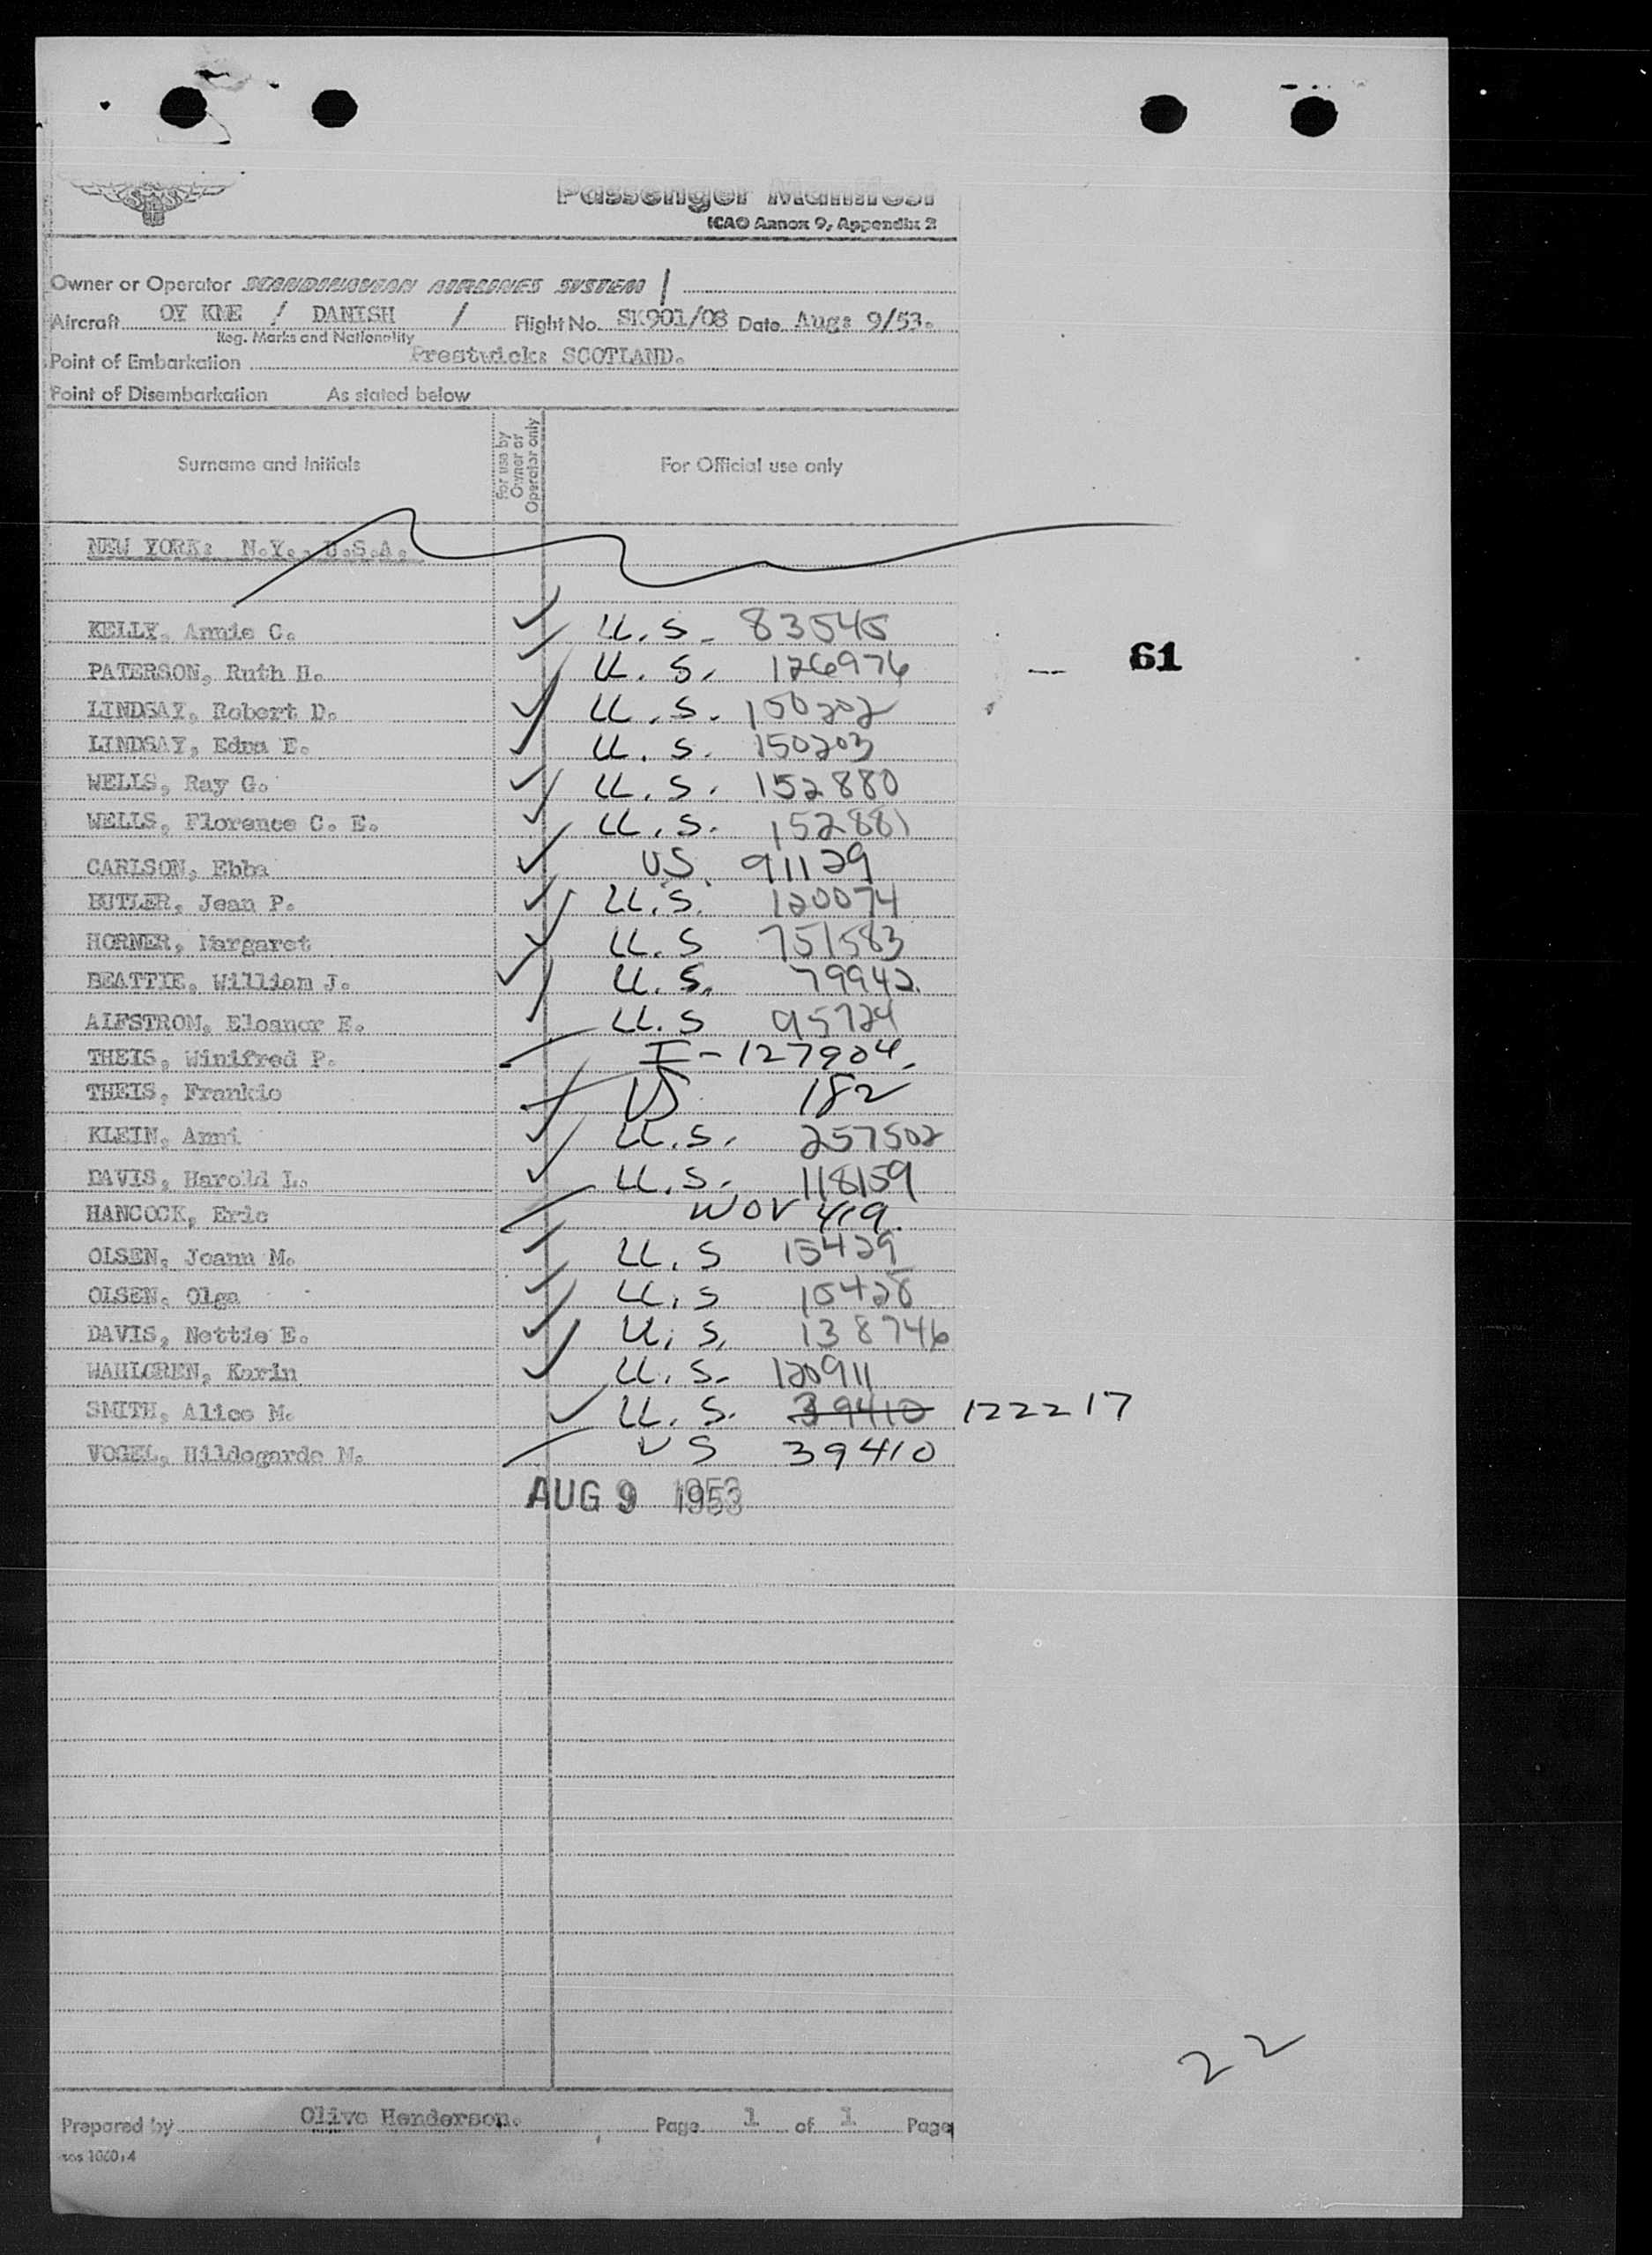 Passenger Manifest
ICAO Annex 9, Appendix 2
Owner or Operator SCANDINAVIAN AIRLINES SYSTEM
Aircraft OY KME / DANISH / Flight No. SK901/08 Date Aug: 9/53.
Reg. Marks and Nationality
Point of Embarkation Prestwick: SCOTLAND.
Point of Disembarkation As stated below
Surname and Initials For use by Owner or Operator only For Official use only
NEW YORK: N.Y., U.S.A.
KELLY, Annie C. U.S. 83545
PATERSON, Ruth H. U.S. 126976
61
LINDSAY, Robert D. U.S. 150202
LINDSAY, Edna E. U.S. 150203
WELLS, Ray G. U.S. 152880
WELLS, Florence C. E. U.S. 152881
CARLSON, Ebba US. 91129
BUTLER, Jean P. U.S. 120074
HORNER, Margaret U.S 751583
BEATTIE, William J. U.S. 79942
ALFSTROM, Eleanor E. U.S 95724
THEIS, Winifred P. I-127904
THEIS, Frankie US 182
KLEIN, Anni U.S. 257502
DAVIS, Harold L. U.S. 118159
HANCOCK, Eric 419.
OLSEN, Joann M. U.S 15429
OLSEN, Olga U.S 15428
DAVIS, Nettie E. U.S. 138746
WAHLGREN, Karin U.S. 120911
SMITH, Alice M. U.S. 39410 122217
VOGEL, Hildegarde M. US 39410
AUG 9 1953
22
Prepared by Olive Henderson. Page 1 of 1 Page
sas 1060:4